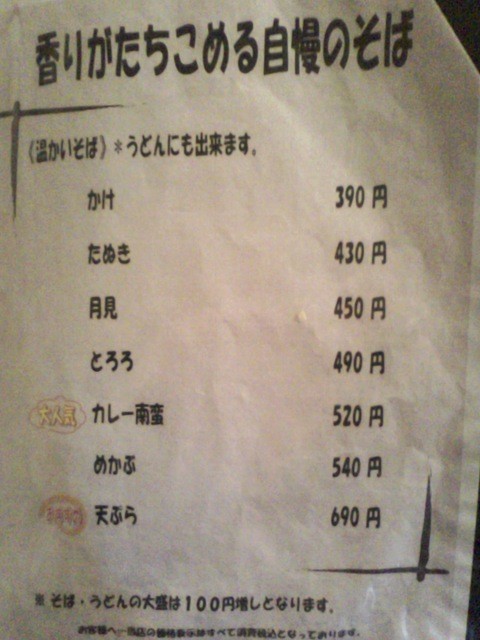 香りがたちこめる自慢のそば
《温かいそば》＊うどんにも出来ます。
かけ 390 円
たぬき 430 円
月見 450 円
とろろ 490 円
大人気 カレー南蛮 520 円
めかぶ 540 円
天ぷら 690 円
※ そば・うどんの大盛は１００円増しとなります。
お客様へ…当店の価格表示はすべて消費税込となっております。